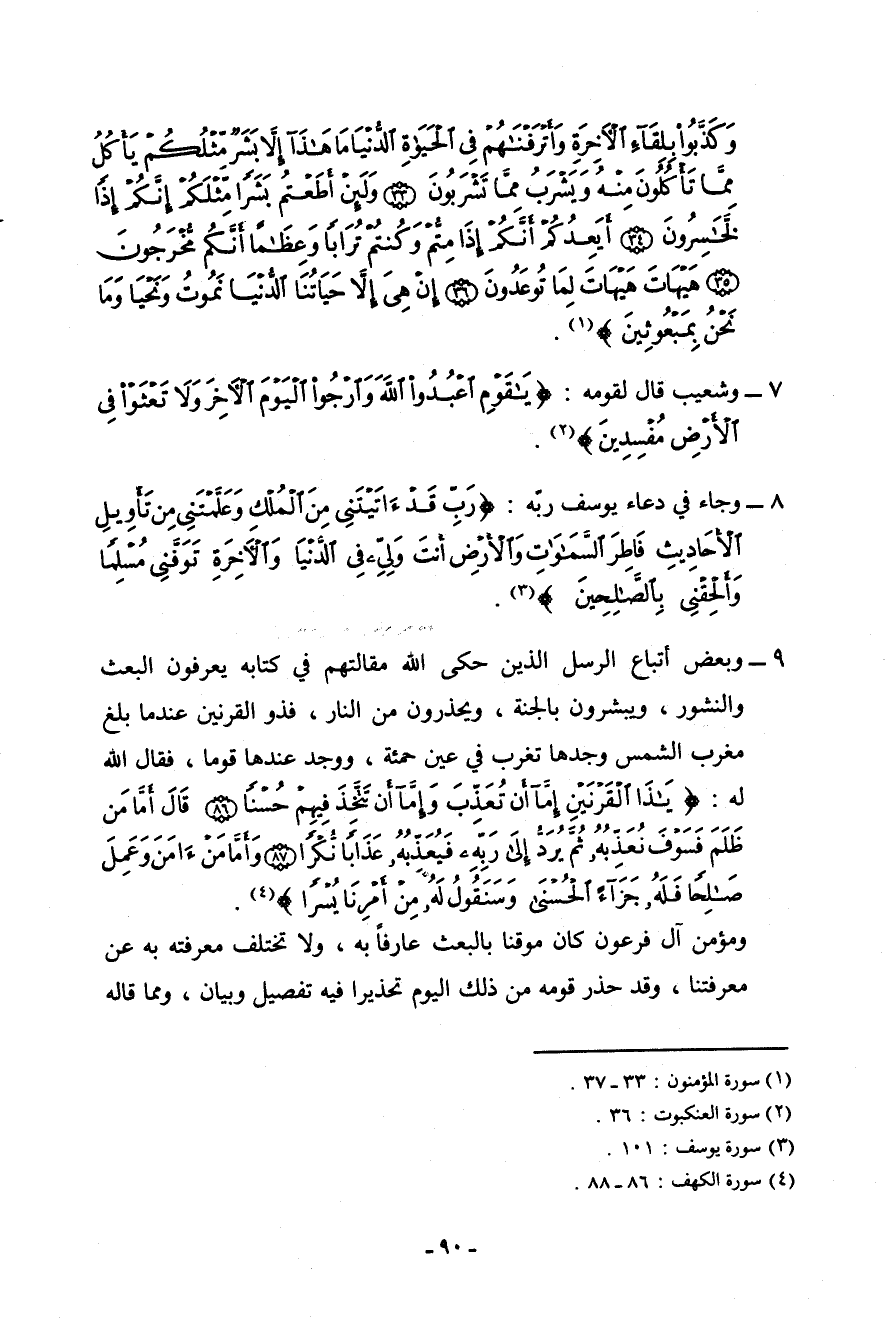 وَكَذَّبُواْ بِلِقَآءِ ٱلْأَخِرَةِ وَأَتْرَفْنَٰهُمْ فِى ٱلْحَيَوٰةِ ٱلدُّنْيَا مَا هَٰذَآ إِلَّا بَشَرٌ مِّثْلُكُمْ يَأْكُلُ
مِمَّا تَأْكُلُونَ مِنْهُ وَيَشْرَبُ مِمَّا تَشْرَبُونَ ﴿٣٣﴾ وَلَئِنْ أَطَعْتُم بَشَرًا مِّثْلَكُمْ إِنَّكُمْ إِذًا
لَّخَٰسِرُونَ ﴿٣٤﴾ أَيَعِدُكُمْ أَنَّكُمْ إِذَا مِتُّمْ وَكُنتُمْ تُرَابًا وَعِظَٰمًا أَنَّكُم مُّخْرَجُونَ
﴿٣٥﴾ هَيْهَاتَ هَيْهَاتَ لِمَا تُوعَدُونَ ﴿٣٦﴾ إِنْ هِىَ إِلَّا حَيَاتُنَا ٱلدُّنْيَا نَمُوتُ وَنَحْيَا وَمَا
نَحْنُ بِمَبْعُوثِينَ ﴾(١) .
٧ ـ وشعيب قال لقومه : ﴿ يَٰقَوْمِ ٱعْبُدُواْ ٱللَّهَ وَٱرْجُواْ ٱلْيَوْمَ ٱلْأَخِرَ وَلَا تَعْثَوْاْ فِى
ٱلْأَرْضِ مُفْسِدِينَ ﴾(٢) .
٨ ـ وجاء في دعاء يوسف ربّه : ﴿ رَبِّ قَدْ ءَاتَيْتَنِى مِنَ ٱلْمُلْكِ وَعَلَّمْتَنِى مِن تَأْوِيلِ
ٱلْأَحَادِيثِ فَاطِرَ ٱلسَّمَٰوَٰتِ وَٱلْأَرْضِ أَنتَ وَلِىِّۦ فِى ٱلدُّنْيَا وَٱلْأَخِرَةِ تَوَفَّنِى مُسْلِمًا
وَأَلْحِقْنِى بِٱلصَّٰلِحِينَ ﴾(٣) .
٩ ـ وبعض أتباع الرسل الذين حكى الله مقالتهم في كتابه يعرفون البعث
والنشور ، ويبشرون بالجنة ، ويحذرون من النار ، فذو القرنين عندما بلغ
مغرب الشمس وجدها تغرب في عين حمئة ، ووجد عندها قوما ، فقال الله
له : ﴿ يَٰذَا ٱلْقَرْنَيْنِ إِمَّآ أَن تُعَذِّبَ وَإِمَّآ أَن تَتَّخِذَ فِيهِمْ حُسْنًا ﴿٨٦﴾ قَالَ أَمَّا مَن
ظَلَمَ فَسَوْفَ نُعَذِّبُهُۥ ثُمَّ يُرَدُّ إِلَىٰ رَبِّهِۦ فَيُعَذِّبُهُۥ عَذَابًا نُّكْرًا ﴿٨٧﴾ وَأَمَّا مَنْ ءَامَنَ وَعَمِلَ
صَٰلِحًا فَلَهُۥ جَزَآءً ٱلْحُسْنَىٰ وَسَنَقُولُ لَهُۥ مِنْ أَمْرِنَا يُسْرًا ﴾(٤) .
ومؤمن آل فرعون كان موقنا بالبعث عارفاً به ، ولا تختلف معرفته به عن
معرفتنا ، وقد حذر قومه من ذلك اليوم تحذيرا فيه تفصيل وبيان ، ومما قاله
(١) سورة المؤمنون : ٣٣ ـ ٣٧ .
(٢) سورة العنكبوت : ٣٦ .
(٣) سورة يوسف : ١٠١ .
(٤) سورة الكهف : ٨٦ ـ ٨٨ .
ـ ٩٠ ـ